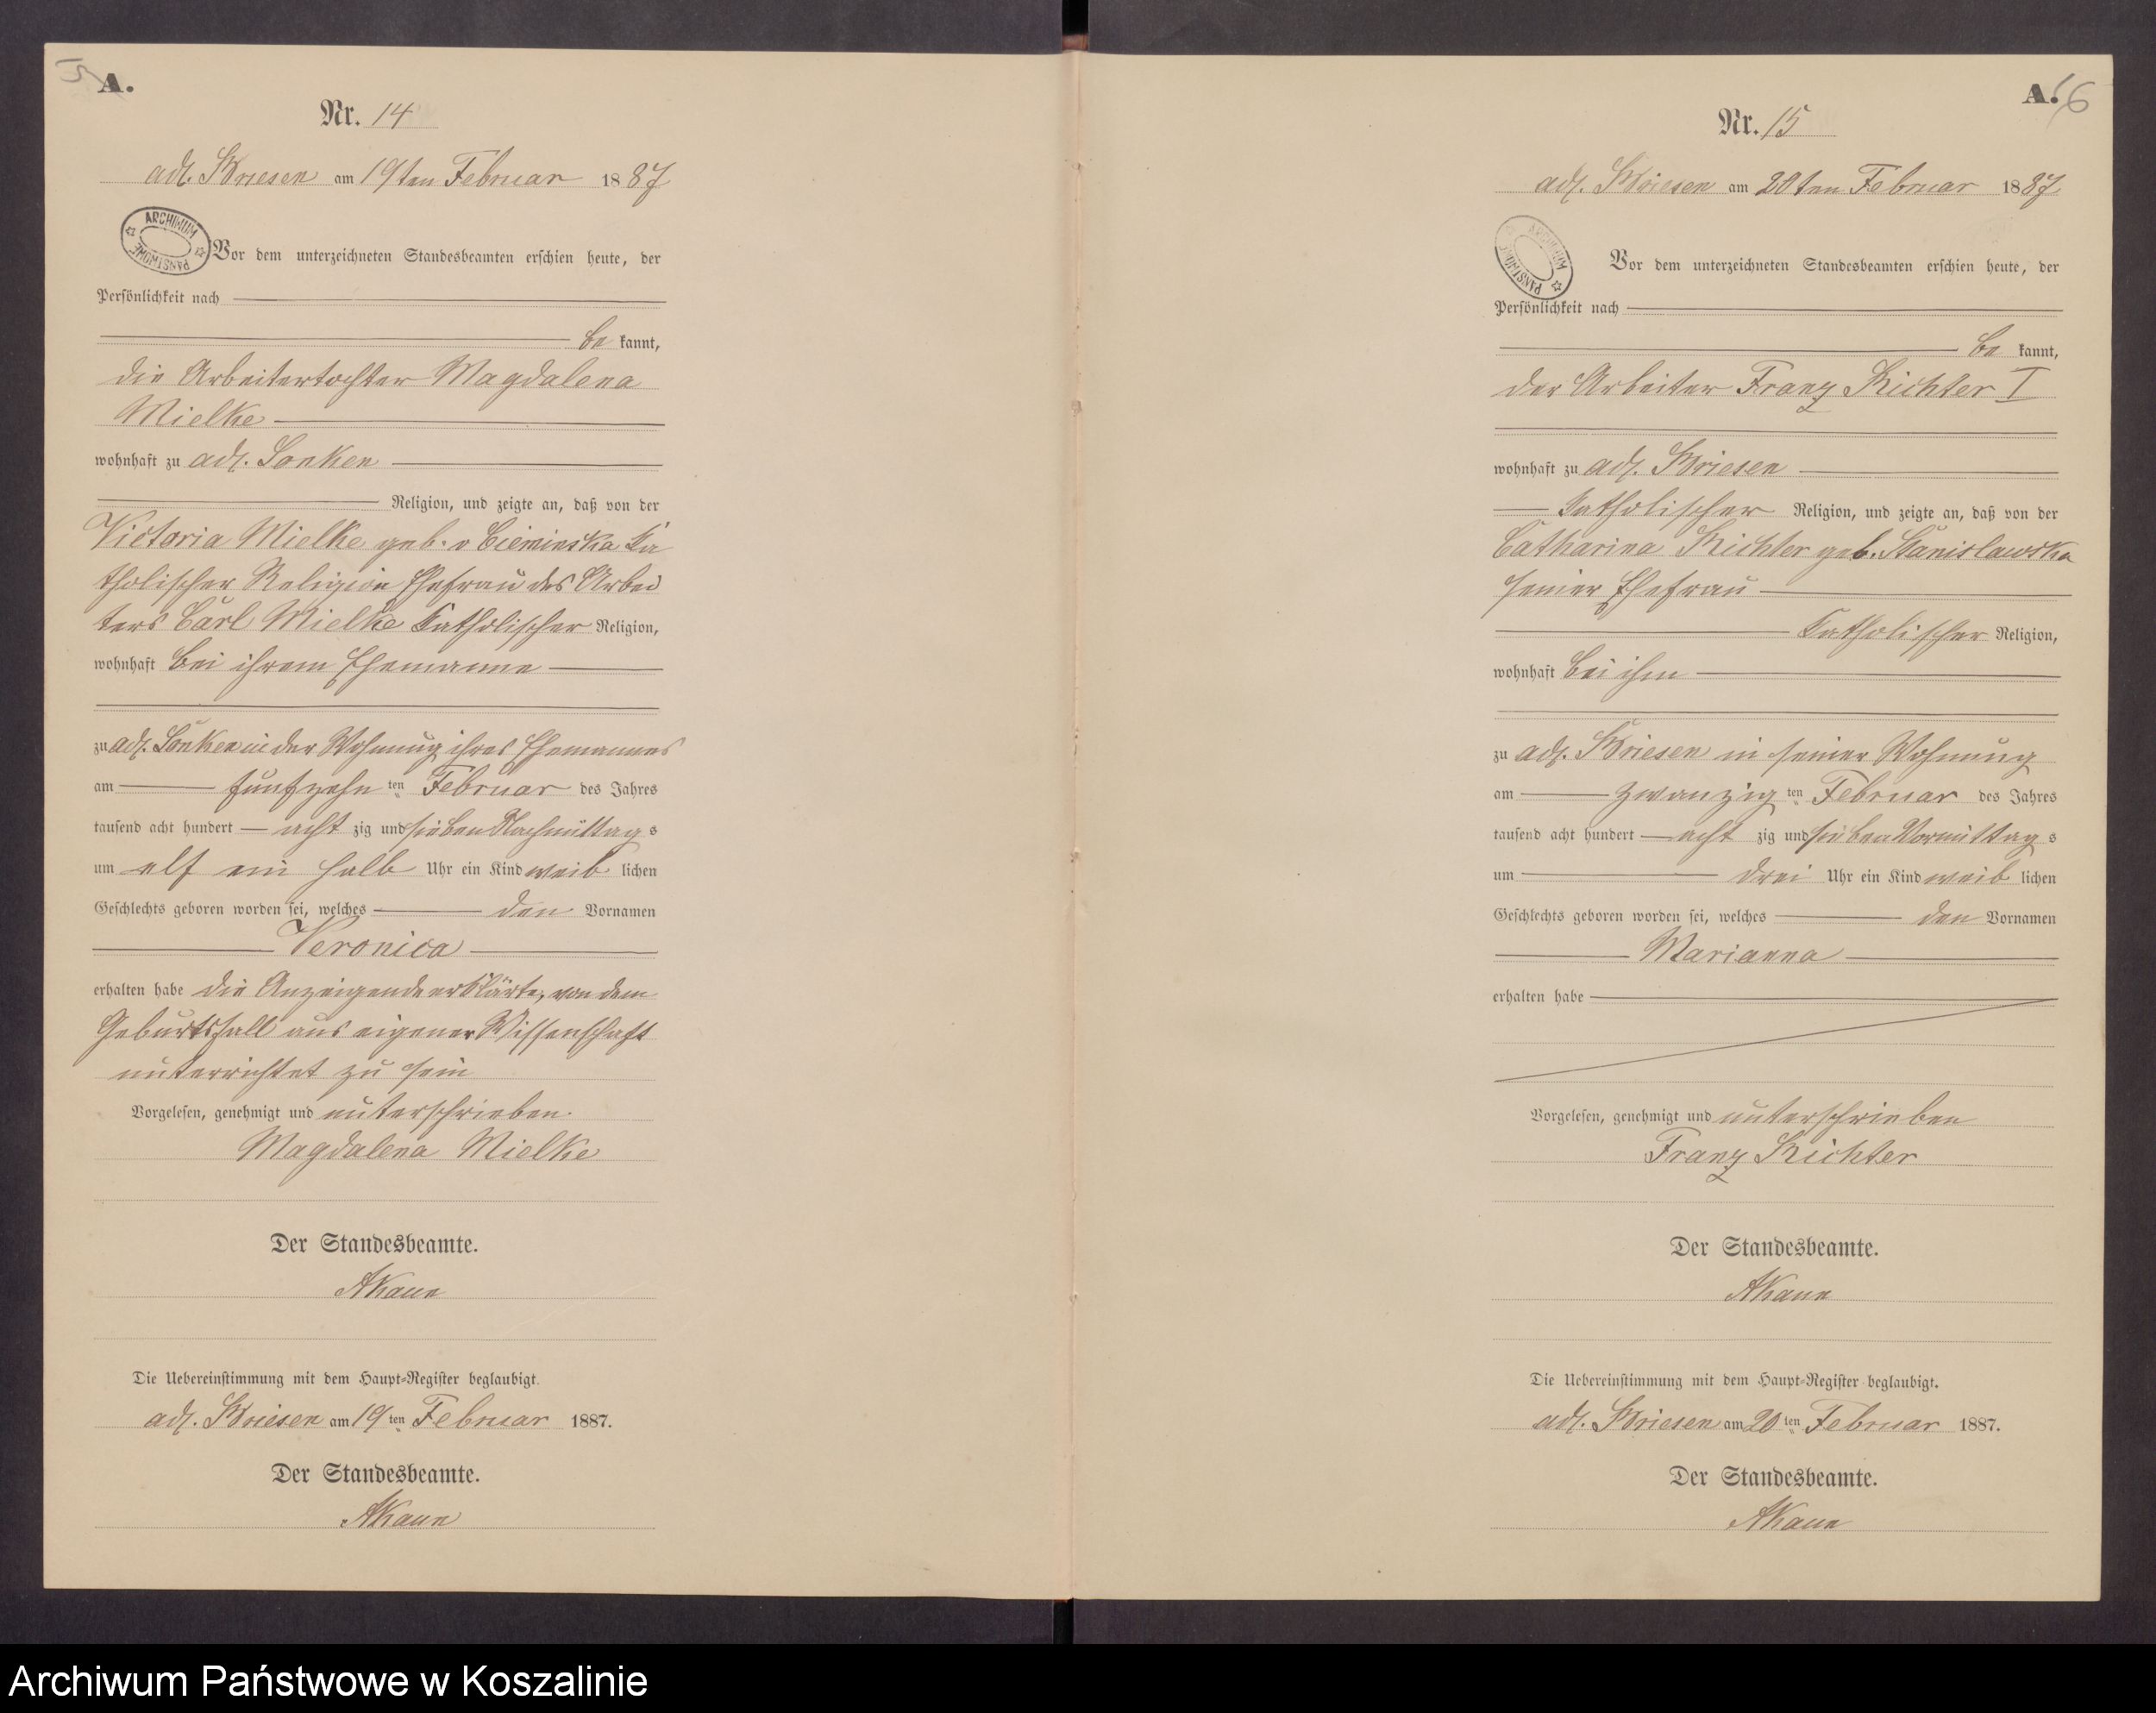 A.
Nr. 14
adl. Briesen am 19ten Februar 1887
ARCHIWUM PAŃSTWOWE
Vor dem unterzeichneten Standesbeamten erschien heute, der
Persönlichkeit nach
be kannt,
die Arbeitertochter Magdalena
Mielke
wohnhaft zu adl. Lonken
Religion, und zeigte an, daß von der
Victoria Mielke geb. v Cieminska ka
tholischer Religion Ehefrau des Arbei
ters Carl Mielke katholischer Religion,
wohnhaft bei ihrem Ehemanne
zu adl. Lonken in der Wohnung ihres Ehemannes
am fünfzehn ten Februar des Jahres
tausend acht hundert acht zig und sieben Nachmittag s
um elf ein halb Uhr ein Kind weib lichen
Geschlechts geboren worden sei, welches den Vornamen
Veronica
erhalten habe die Anzeigende erklärte, von dem
Geburtsfall aus eigener Wissenschaft
unterrichtet zu sein
Vorgelesen, genehmigt und unterschrieben.
Magdalena Mielke
Der Standesbeamte.
Die Uebereinstimmung mit dem Haupt-Register beglaubigt.
adl. Briesen am 19 ten Februar 1887.
Der Standesbeamte.
A. 16
Nr. 15
adl. Briesen am 20ten Februar 1887
ARCHIWUM PAŃSTWOWE
Vor dem unterzeichneten Standesbeamten erschien heute, der
Persönlichkeit nach
be kannt,
der Arbeiter Franz Richter I
wohnhaft zu adl. Briesen
katholischer Religion, und zeigte an, daß von der
Catharina Richter geb. Stanislawska
seiner Ehefrau
katholischer Religion,
wohnhaft bei ihm
zu adl. Briesen in seiner Wohnung
am zwanzig ten Februar des Jahres
tausend acht hundert acht zig und sieben Vormittag s
um drei Uhr ein Kind weib lichen
Geschlechts geboren worden sei, welches den Vornamen
Marianna
erhalten habe
Vorgelesen, genehmigt und unterschrieben
Franz Richter
Der Standesbeamte.
Die Uebereinstimmung mit dem Haupt-Register beglaubigt.
adl. Briesen am 20 ten Februar 1887.
Der Standesbeamte.
Archiwum Państwowe w Koszalinie